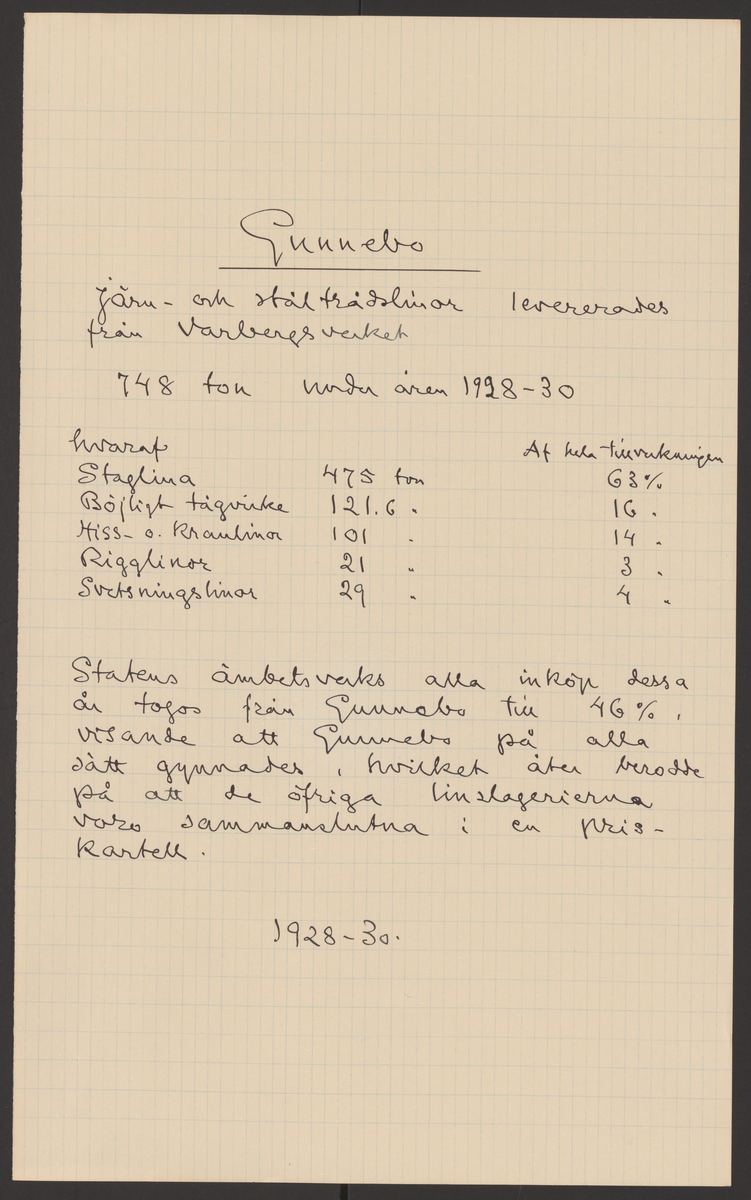 Gunnebo
Järn- och ståltrådslinor levererades
från Varbergsverket
748 ton under åren 1928-30
hvaraf Af hela tillverkningen
Staglina 475 ton 63%
Böjligt tågvirke 121.6 " 16 "
Hiss- o. Kranlinor 101 " 14 "
Rigglinor 21 " 3 "
Svetsningslinor 29 " 4 "
Statens ämbetsverks alla inköp dessa
år togos från Gunnebo till 46%,
visande att Gunnebo på alla
sätt gynnades, hvilket åter berodde
på att de öfriga linslagerierna
voro sammanslutna i en pris-
kartell.
1928-30.